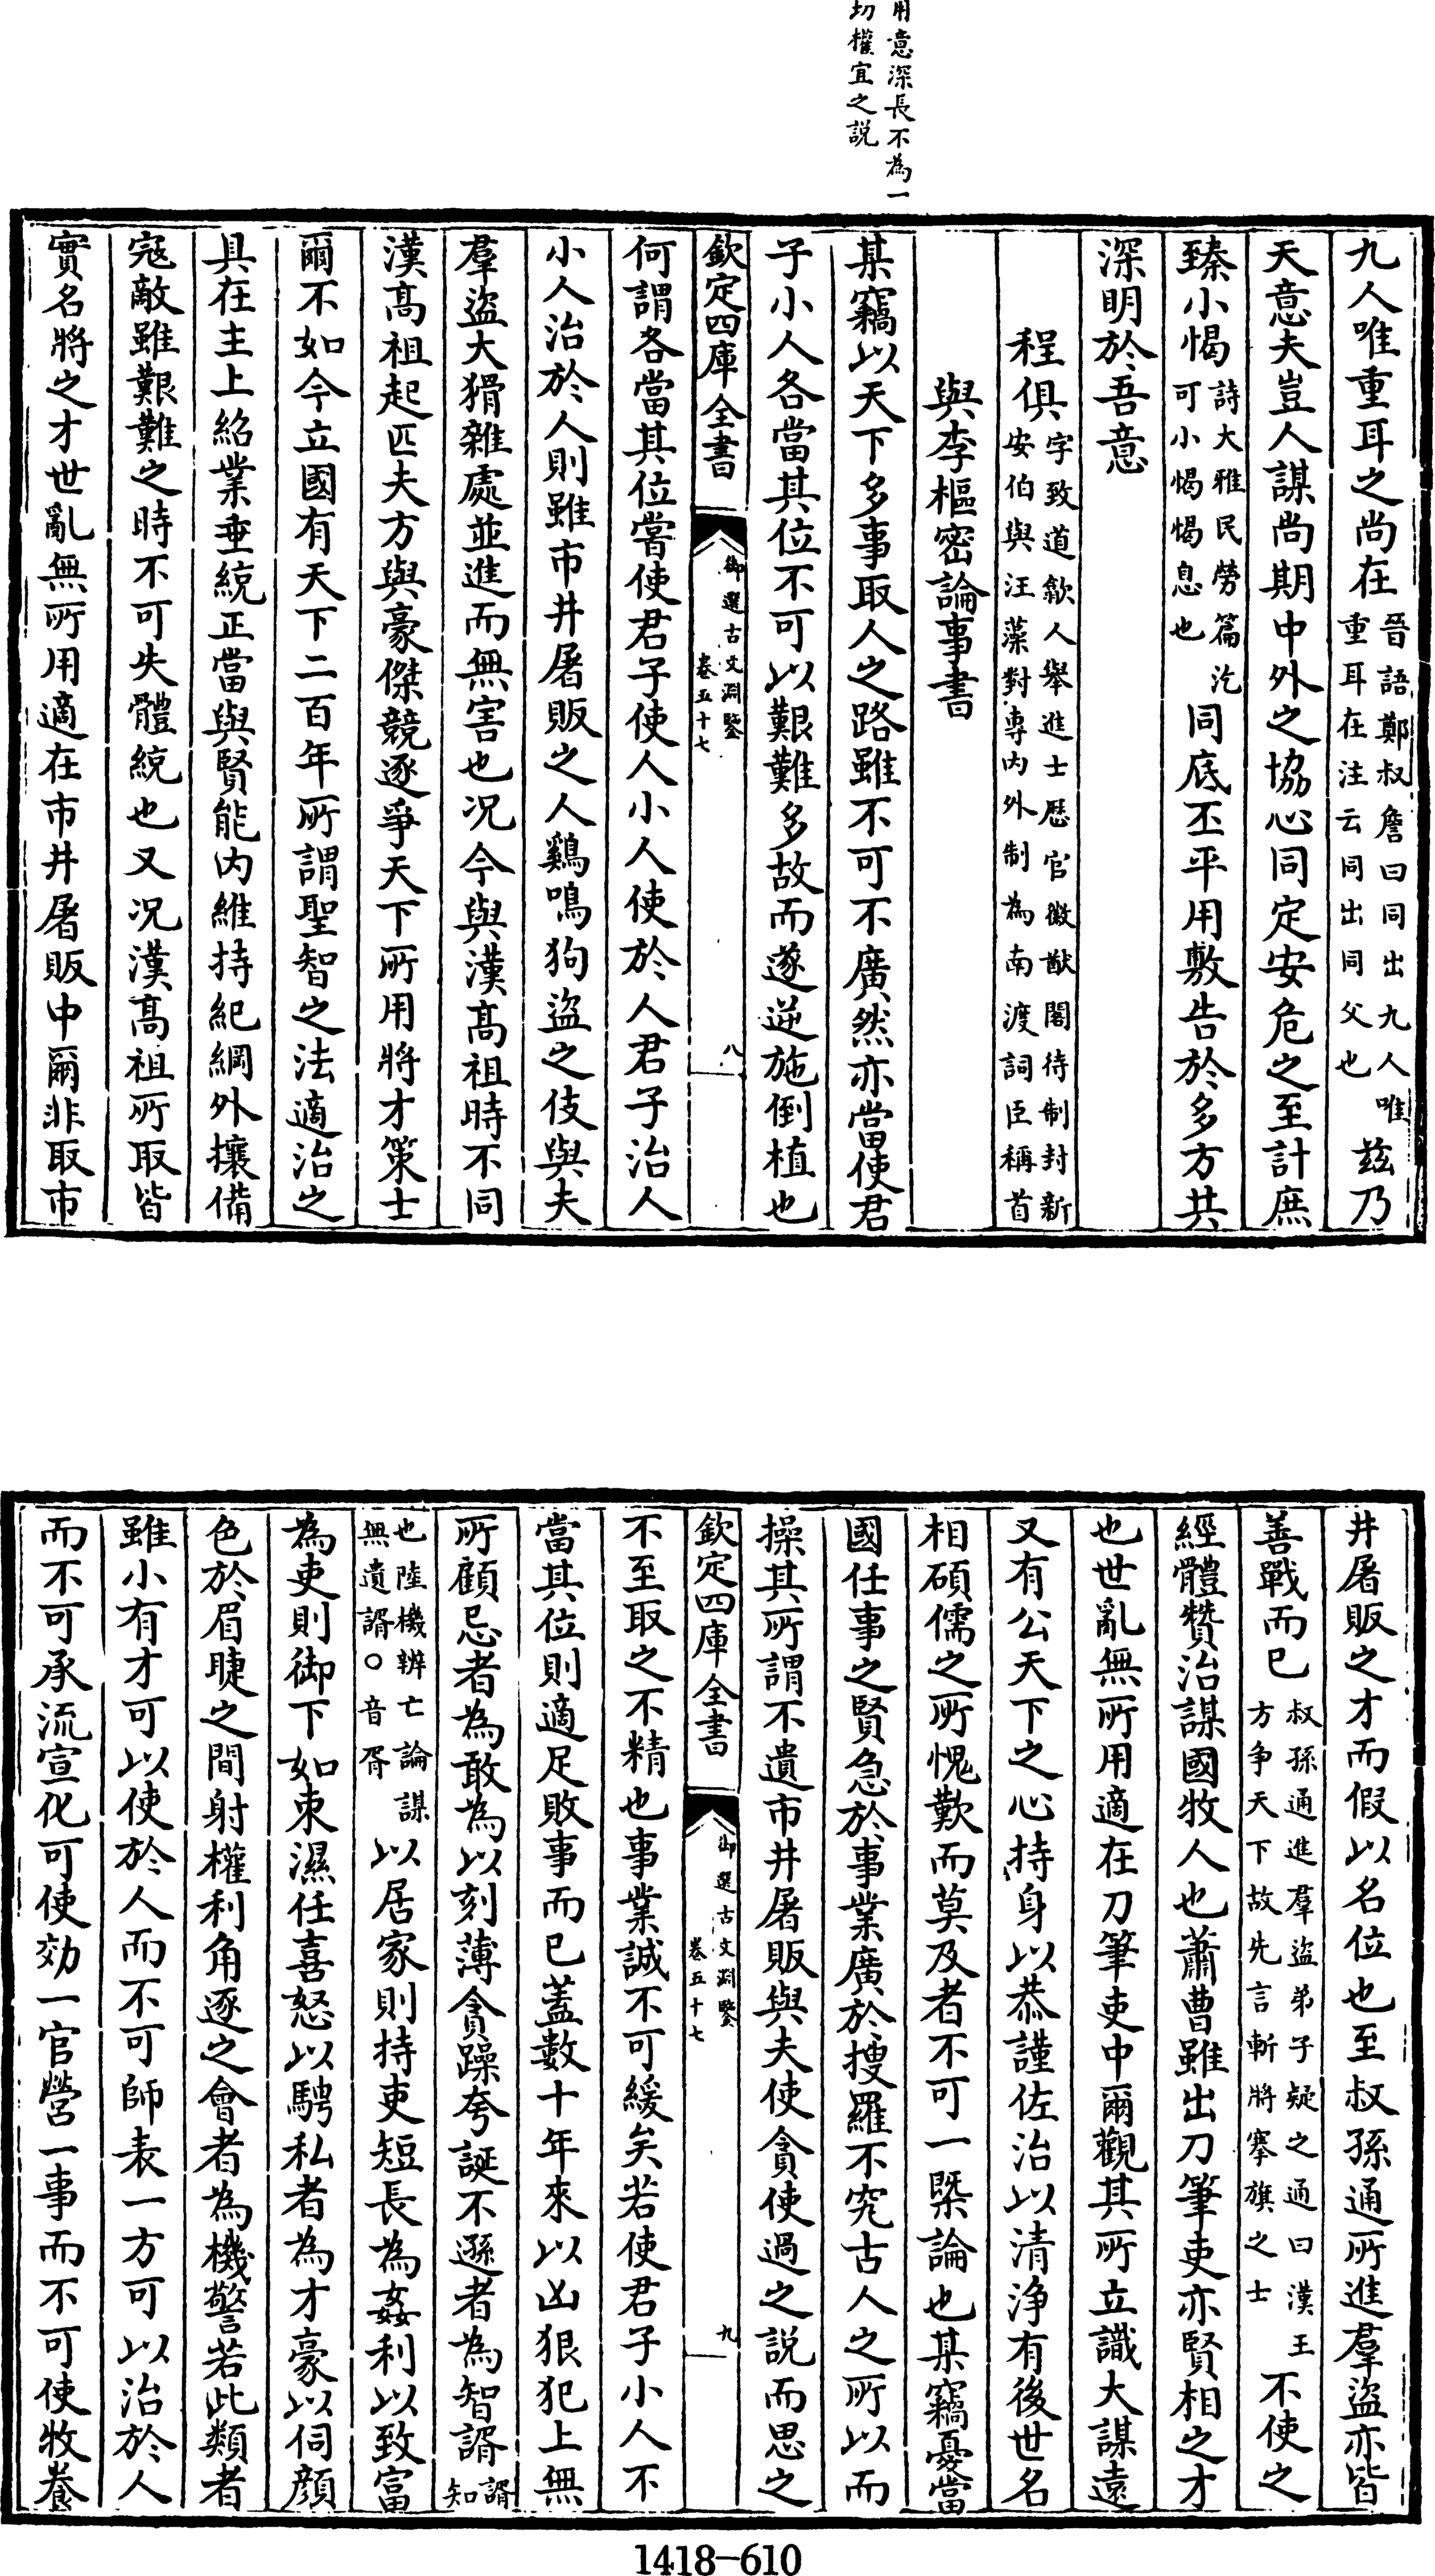 用意深長不為一
切權宜之説
九人唯重耳之尚在晉語鄭叔詹曰同出九人唯重耳在注云同出同父也兹乃
天意夫豈人謀尚期中外之協心同定安危之至計庶
臻小愒詩大雅民勞篇汔可小愒愒息也同底丕平用敷告於多方共
深明於吾意
程俱字致道歙人舉進士歴官徽猷閣待制封新安伯與汪藻對専内外制為南渡詞臣稱首
與李樞密論事書
某竊以天下多事取人之路雖不可不廣然亦當使君
子小人各當其位不可以艱難多故而遂逆施倒植也
欽定四庫全書
御選古文淵鑒
卷五十七
八
何謂各當其位嘗使君子使人小人使於人君子治人
小人治於人則雖市井屠販之人鷄鳴狗盜之伎與夫
羣盜大猾雜處並進而無害也况今與漢髙祖時不同
漢髙祖起匹夫方與豪傑競逐爭天下所用將才策士
爾不如今立國有天下二百年所謂聖智之法適治之
具在主上紹業垂統正當與賢能内維持紀綱外攘備
寇敵雖艱難之時不可失體統也又况漢髙祖所取皆
實名將之才世亂無所用適在市井屠販中爾非取市
井屠販之才而假以名位也至叔孫通所進羣盜亦皆
善戰而已叔孫通進羣盜弟子疑之通曰漢王方争天下故先言斬將搴旗之士不使之
經體贊治謀國牧人也蕭曹雖出刀筆吏亦賢相之才
也世亂無所用適在刀筆吏中爾觀其所立識大謀遠
又有公天下之心持身以恭謹佐治以清浄有後世名
相碩儒之所愧歎而莫及者不可一槩論也某竊憂當
國任事之賢急於事業廣於搜羅不究古人之所以而
操其所謂不遺市井屠販與夫使貪使過之説而思之
欽定四庫全書
御選古文淵鑒
卷五十七
九
不至取之不精也事業誠不可緩矣若使君子小人不
當其位則適足敗事而已葢數十年來以凶狠犯上無
所顧忌者為敢為以刻薄貪躁夸誕不遜者為智諝諝知
也陸機辨亡論謀無遺諝○音胥以居家則持吏短長為姦利以致富
為吏則御下如束濕任喜怒以騁私者為才豪以伺顔
色於眉睫之間射權利角逐之會者為機警若此類者
雖小有才可以使於人而不可師表一方可以治於人
而不可承流宣化可使効一官營一事而不可使牧養
1418-610